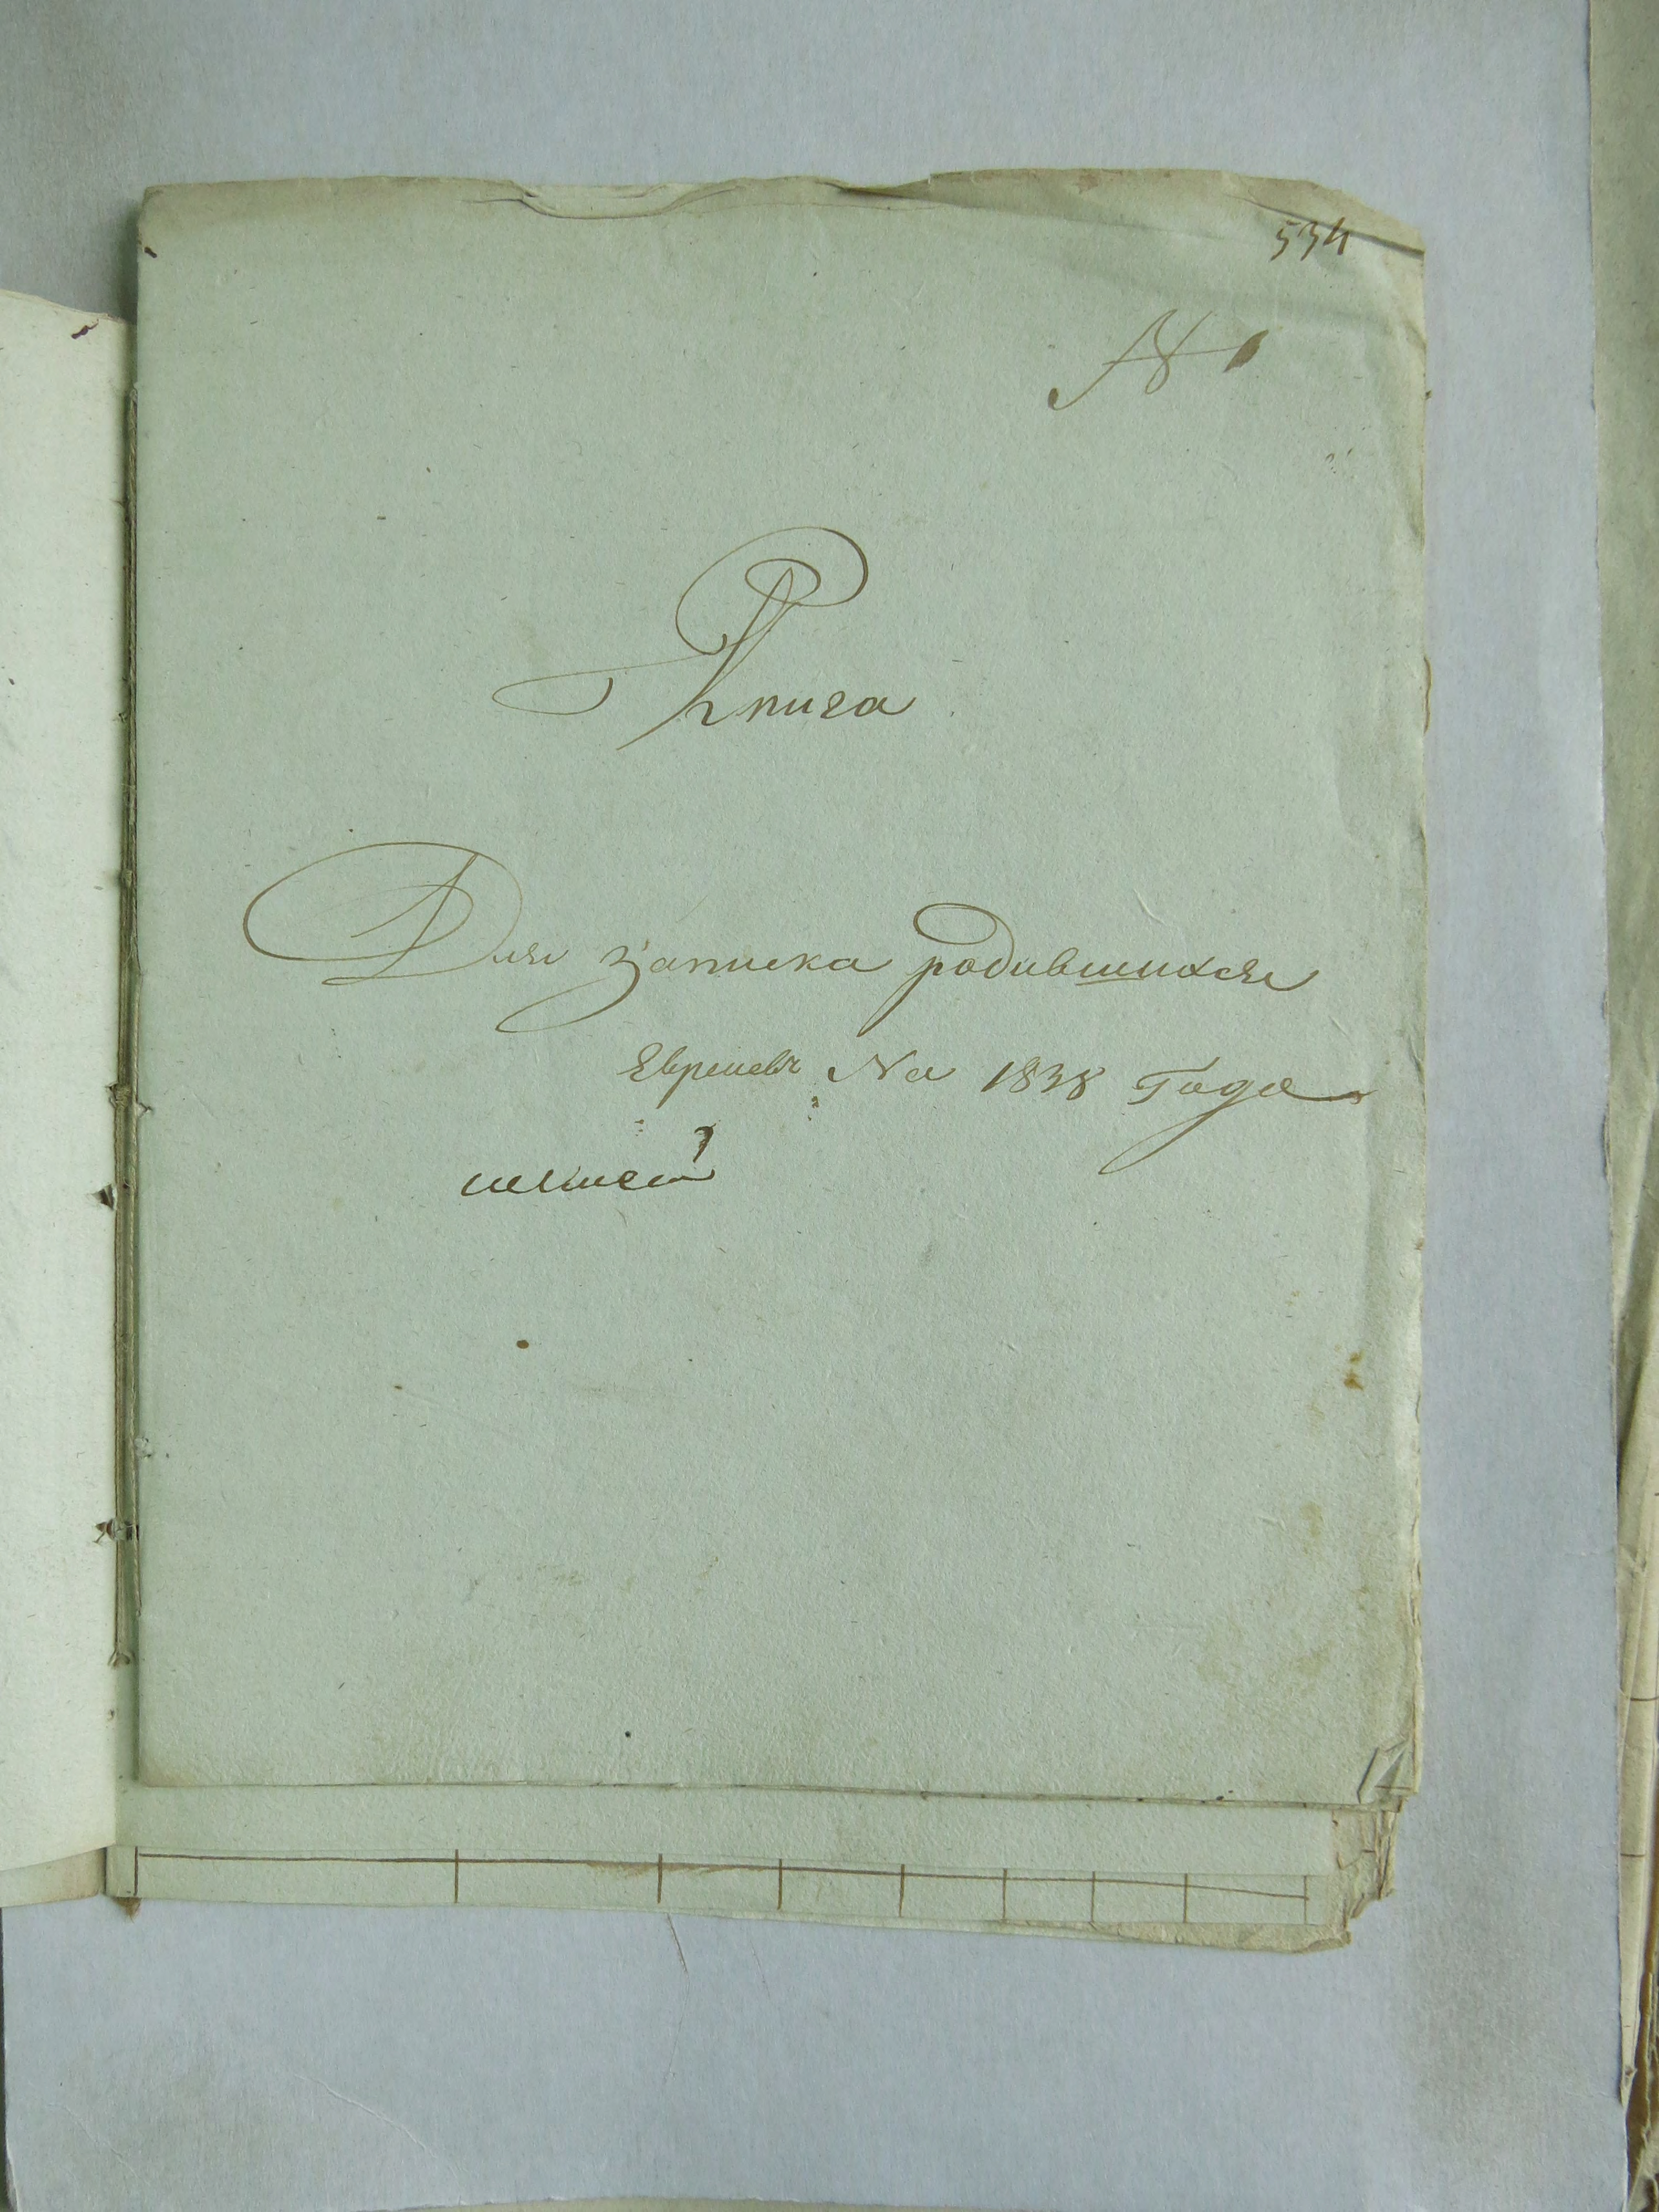 534
№ 1
Книга
Для записка родившихся
Евреевъ На 1838 Года
17